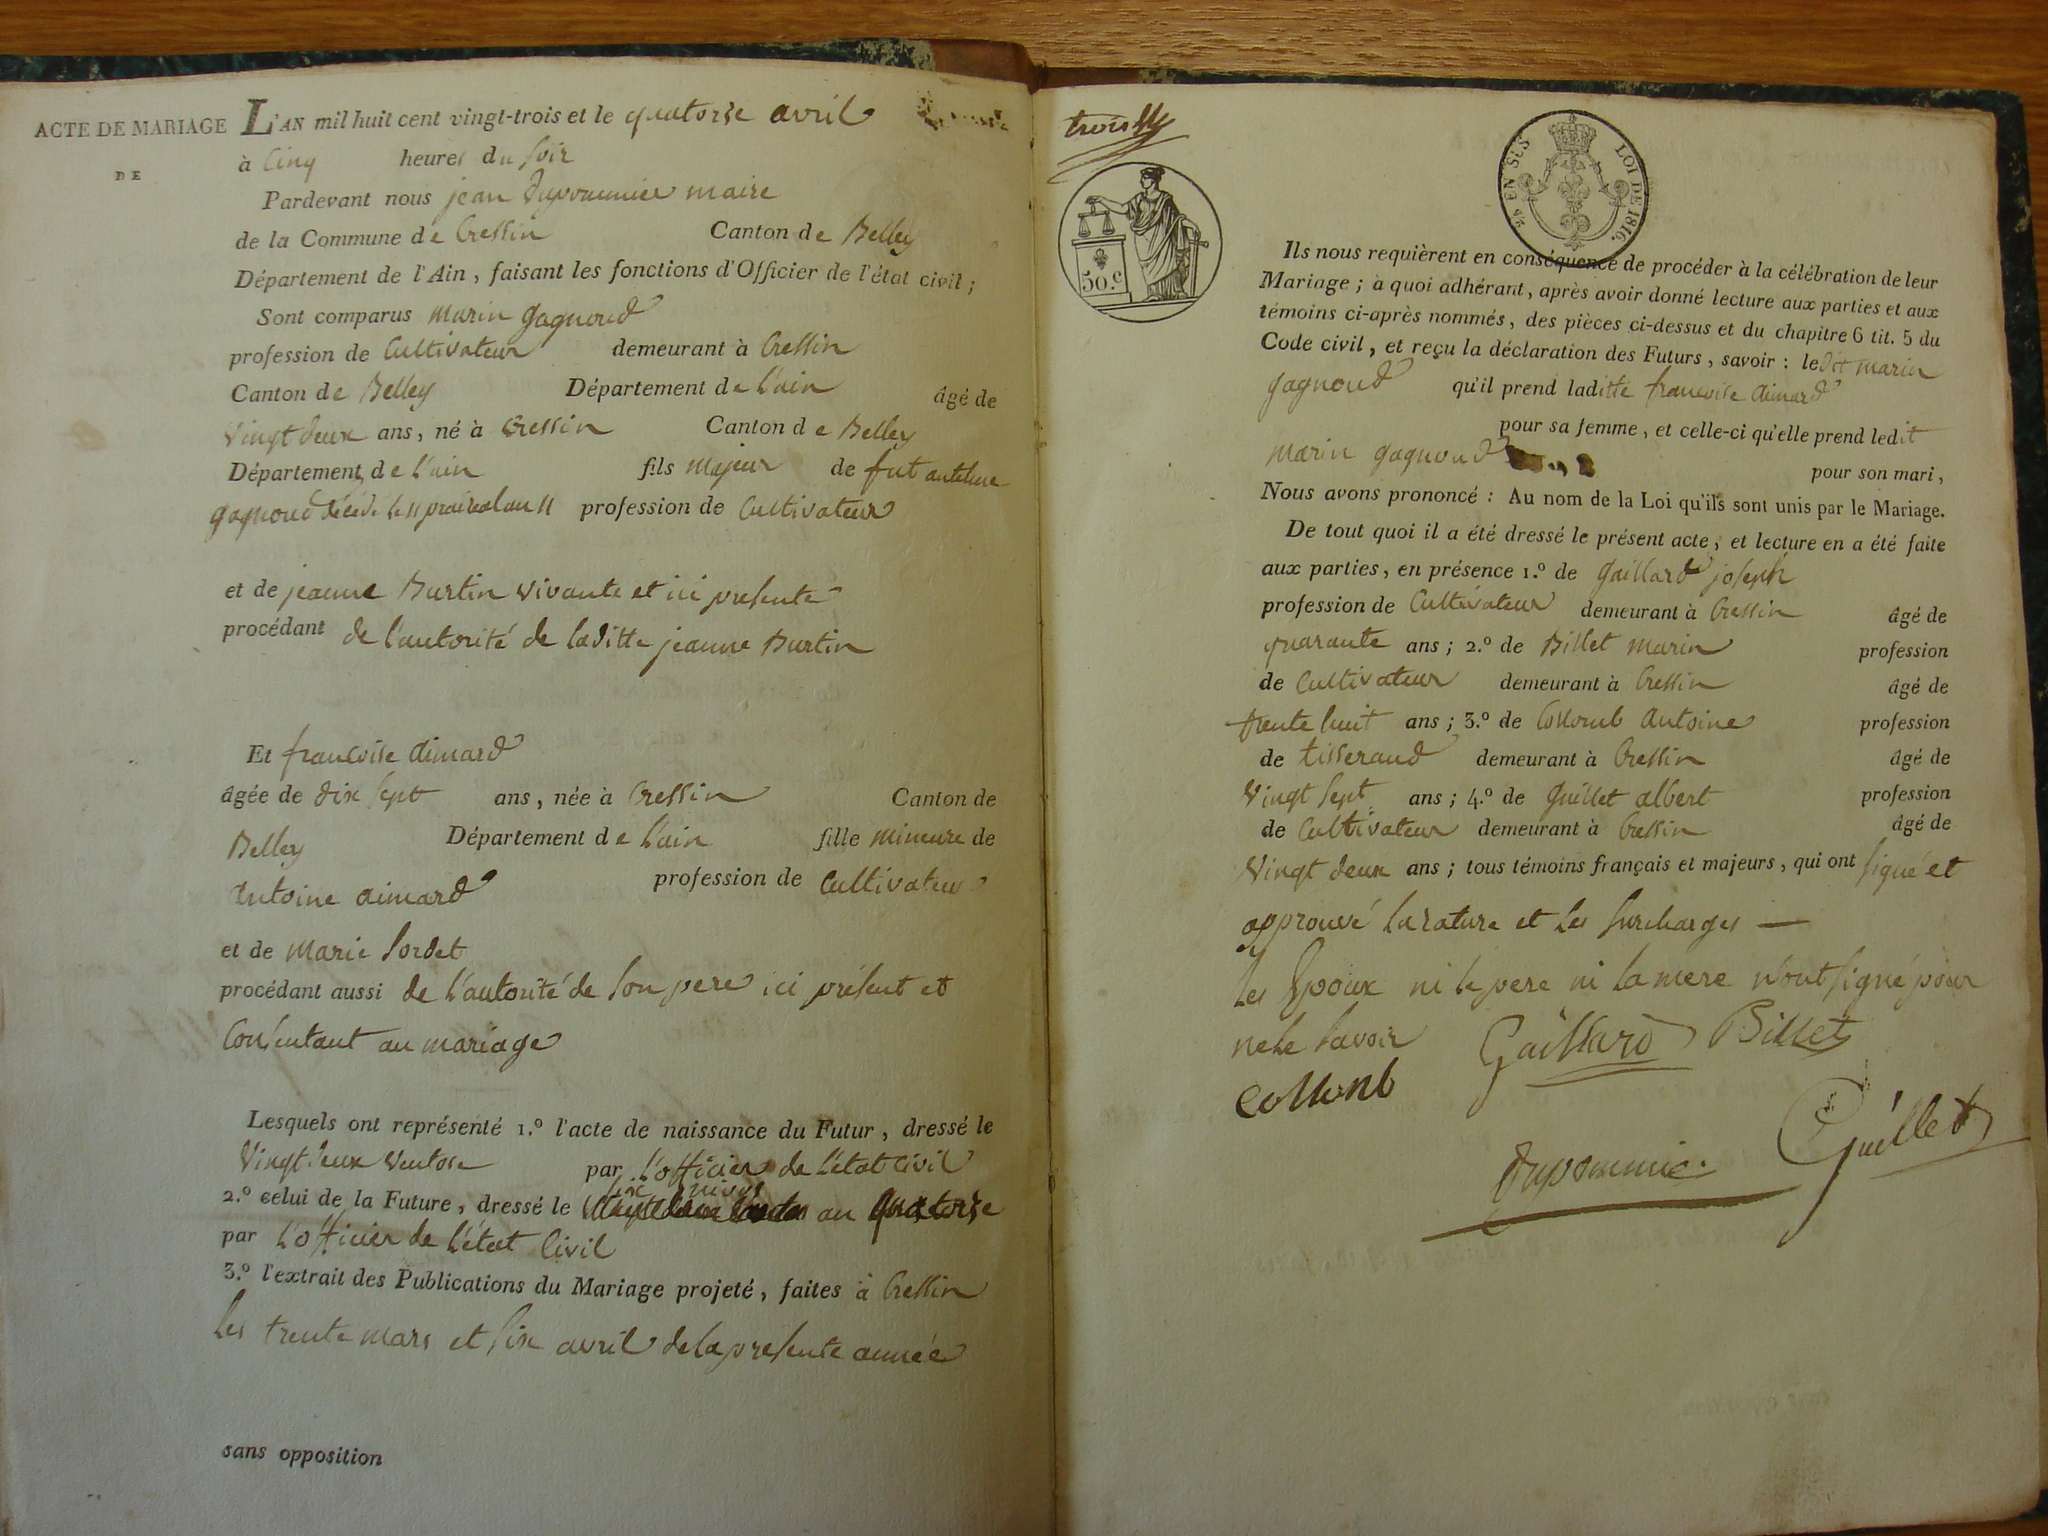 ACTE DE MARIAGE
DE
L'AN mil huit cent vingt-trois et le quatorse avril
à Cinq heures du soir
Pardevant nous jean Dupommier maire
de la Commune de Cressin Canton de Belley
Département de l'Ain, faisant les fonctions d'Officier de l'état civil;
Sont comparus marin gagnoud
profession de Cultivateur demeurant à Cressin
Canton de Belley Département de l'ain âgé de
vingt deux ans, né à Cressin Canton de Belley
Département de l'ain fils majeur de fut antelme
gagnoud décédé le 11 prairial an 11 profession de Cultivateur
et de jeanne Burtin vivante et ici presente
procédant de l'autorité de laditte jeanne Burtin
Et francoise aimard
âgée de dix sept ans, née à Cressin Canton de
Belley Département de l'ain fille mineure de
antoine aimard profession de Cultivateur
et de marie sordet
procédant aussi de l'autorité de son pere ici présent et
Consentant au mariage
Lesquels ont représenté 1.º l'acte de naissance du Futur, dressé le
vingt deux ventose par l'officier de l'état Civil
2.º celui de la Future, dressé le six nivos an quatorze
par l'officier de l'état Civil
3.º l'extrait des Publications du Mariage projeté, faites à Cressin
les trente mars et six avril de la presente année
sans opposition
trois
50.c
LOI DE 1816.
Ils nous requièrent en conséquence de procéder à la célébration de leur
Mariage; à quoi adhérant, après avoir donné lecture aux parties et aux
témoins ci-après nommés, des pièces ci-dessus et du chapitre 6 tit. 5 du
Code civil, et reçu la déclaration des Futurs, savoir: ledit marin
gagnoud qu'il prend laditte francoise aimard
pour sa femme, et celle-ci qu'elle prend ledit
marin gagnoud pour son mari,
Nous avons prononcé: Au nom de la Loi qu'ils sont unis par le Mariage.
De tout quoi il a été dressé le présent acte, et lecture en a été faite
aux parties, en présence 1.º de gaillard joseph
profession de Cultivateur demeurant à Cressin âgé de
quarante ans; 2.º de Billet marin profession
de Cultivateur demeurant à Cressin âgé de
trente huit ans; 3.º de Collomb antoine profession
de tisserand demeurant à Cressin âgé de
vingt sept ans; 4.º de guillet albert profession
de Cultivateur demeurant à Cressin âgé de
vingt deux ans; tous témoins français et majeurs, qui ont signé et
approuvé la rature et les surcharges —
les Epoux ni le pere ni la mere n'ont signé pour
ne le savoir Gaillard Billet
Collonb
Guillet
Dupommier